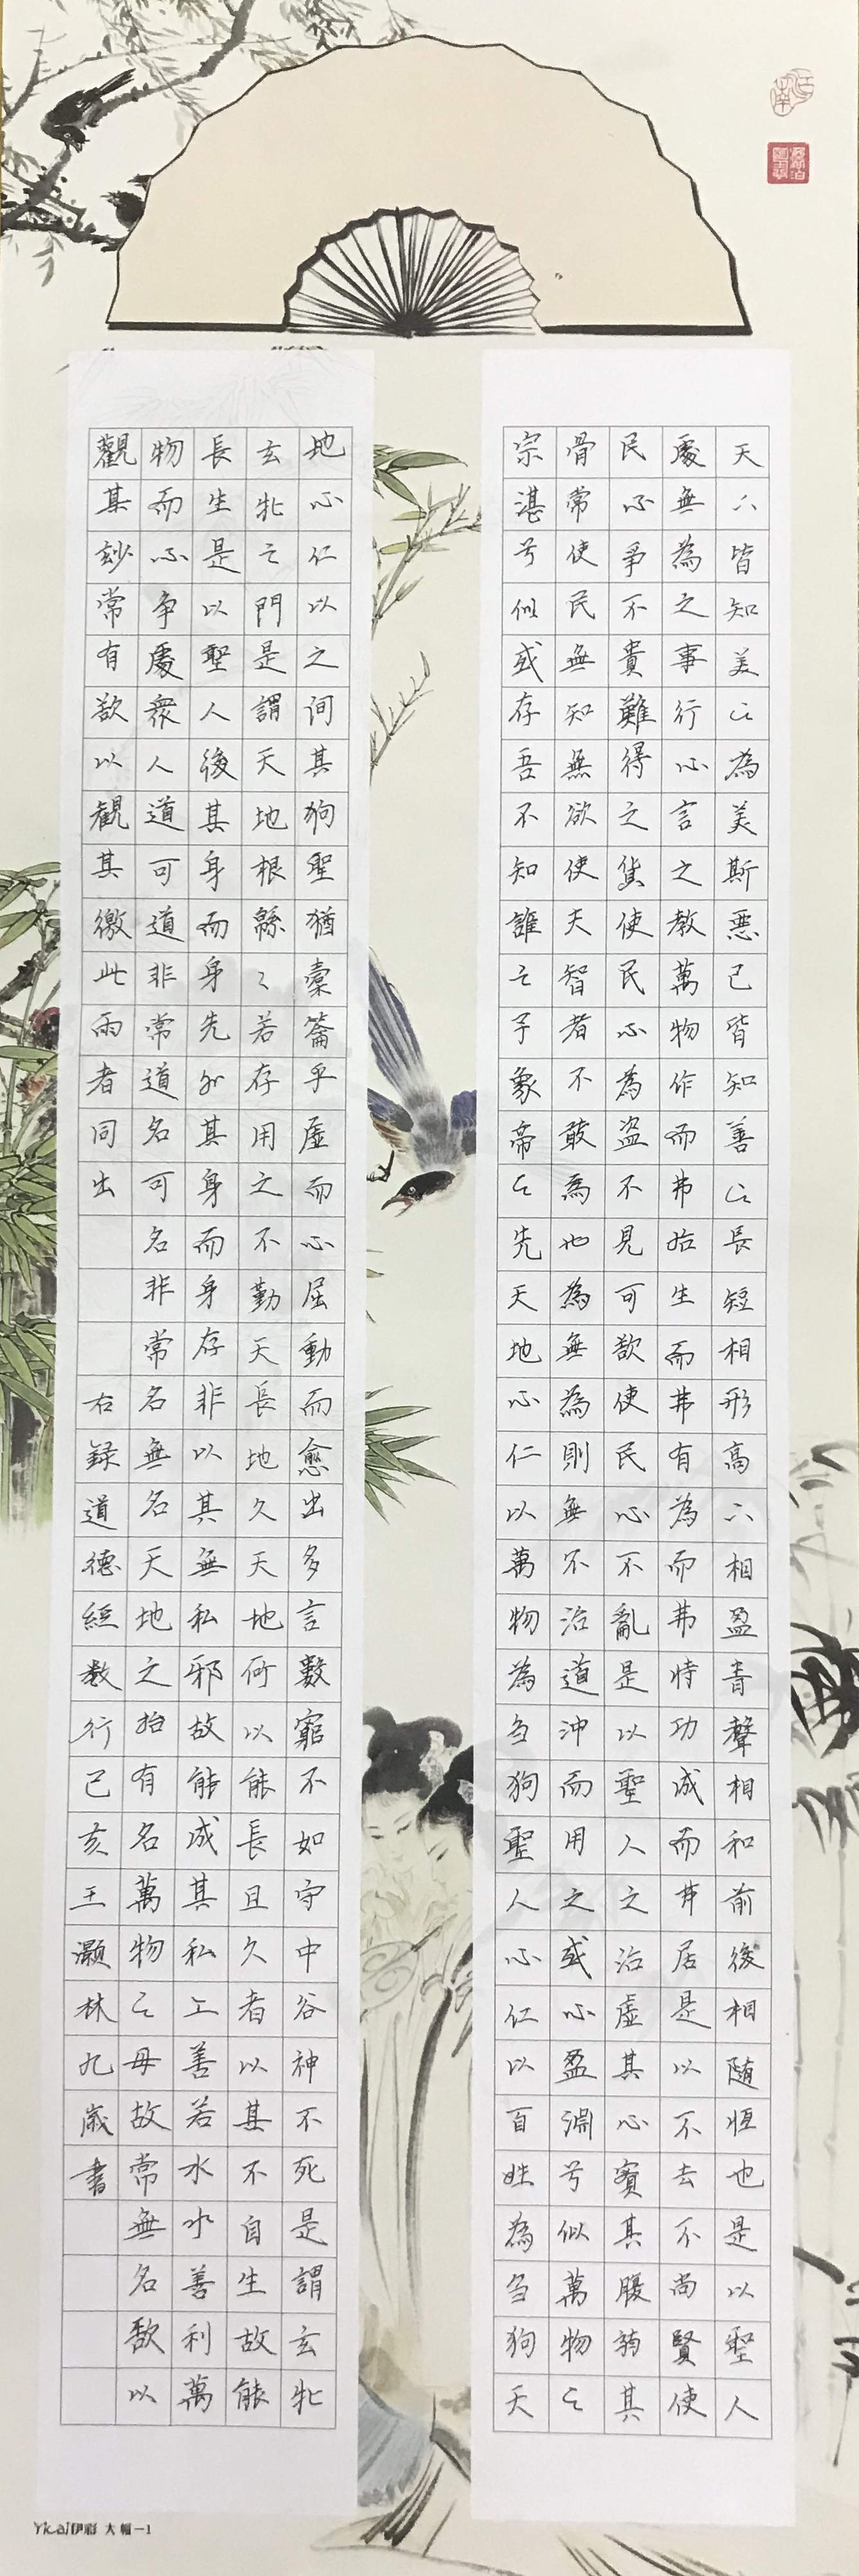 天下皆知美之為美斯惡已皆知善之長短相形高下相盈音聲相和前後相随恒也是以聖人
處無為之事行不言之教萬物作而弗始生而弗有為而弗恃功成而弗居是以不去不尚賢使
民不爭不貴難得之貨使民不為盗不見可欲使民心不亂是以聖人之治虚其心實其腹弱其
骨常使民無知無欲使夫智者不敢為也為無為則無不治道沖而用之或不盈淵兮似萬物之
宗湛兮似或存吾不知誰之子象帝之先天地不仁以萬物為芻狗聖人不仁以百姓為芻狗天
地不仁以之间其狗聖猶橐籥乎虚而不屈動而愈出多言數窮不如守中谷神不死是謂玄牝
玄牝之門是謂天地根緜々若存用之不勤天長地久天地何以能長且久者以其不自生故能
長生是以聖人後其身而身先外其身而身存非以其無私邪故能成其私上善若水水善利萬
物而不争處衆人道可道非常道名可名非常名無名天地之始有名萬物之母故常無名欲以
觀其妙常有欲以觀其徼此兩者同出
右録道德經数行己亥王灝林九歲書
Yicai伊彩 大幅-1